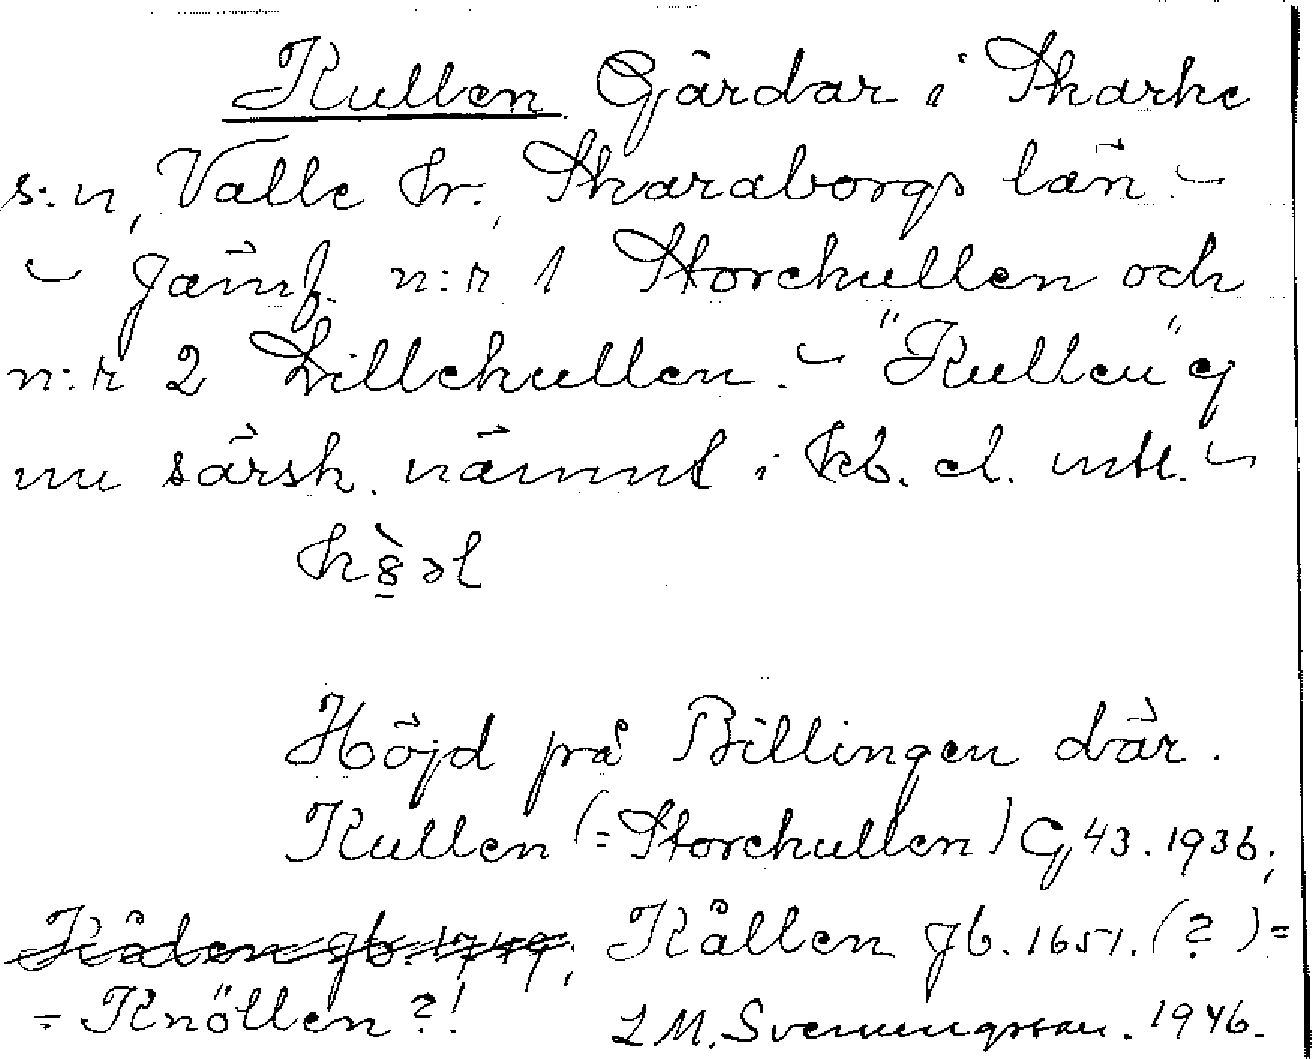 Kullen Gårdar i Skärke
s:n, Valle hr., Skaraborgs län. -
- Jämf. n:r 1 Storekullen och
n:r 2 Lillekullen. - "Kullen" ej
nu särsk. nämnt i kb. el. mtl. -
Höjd på Billingen där.
Kullen (= Storekullen) GJ 43. 1936;
Kållen jb. 1651. (?) =
= Knöllen ?! L M. Svenungsson. 1946.